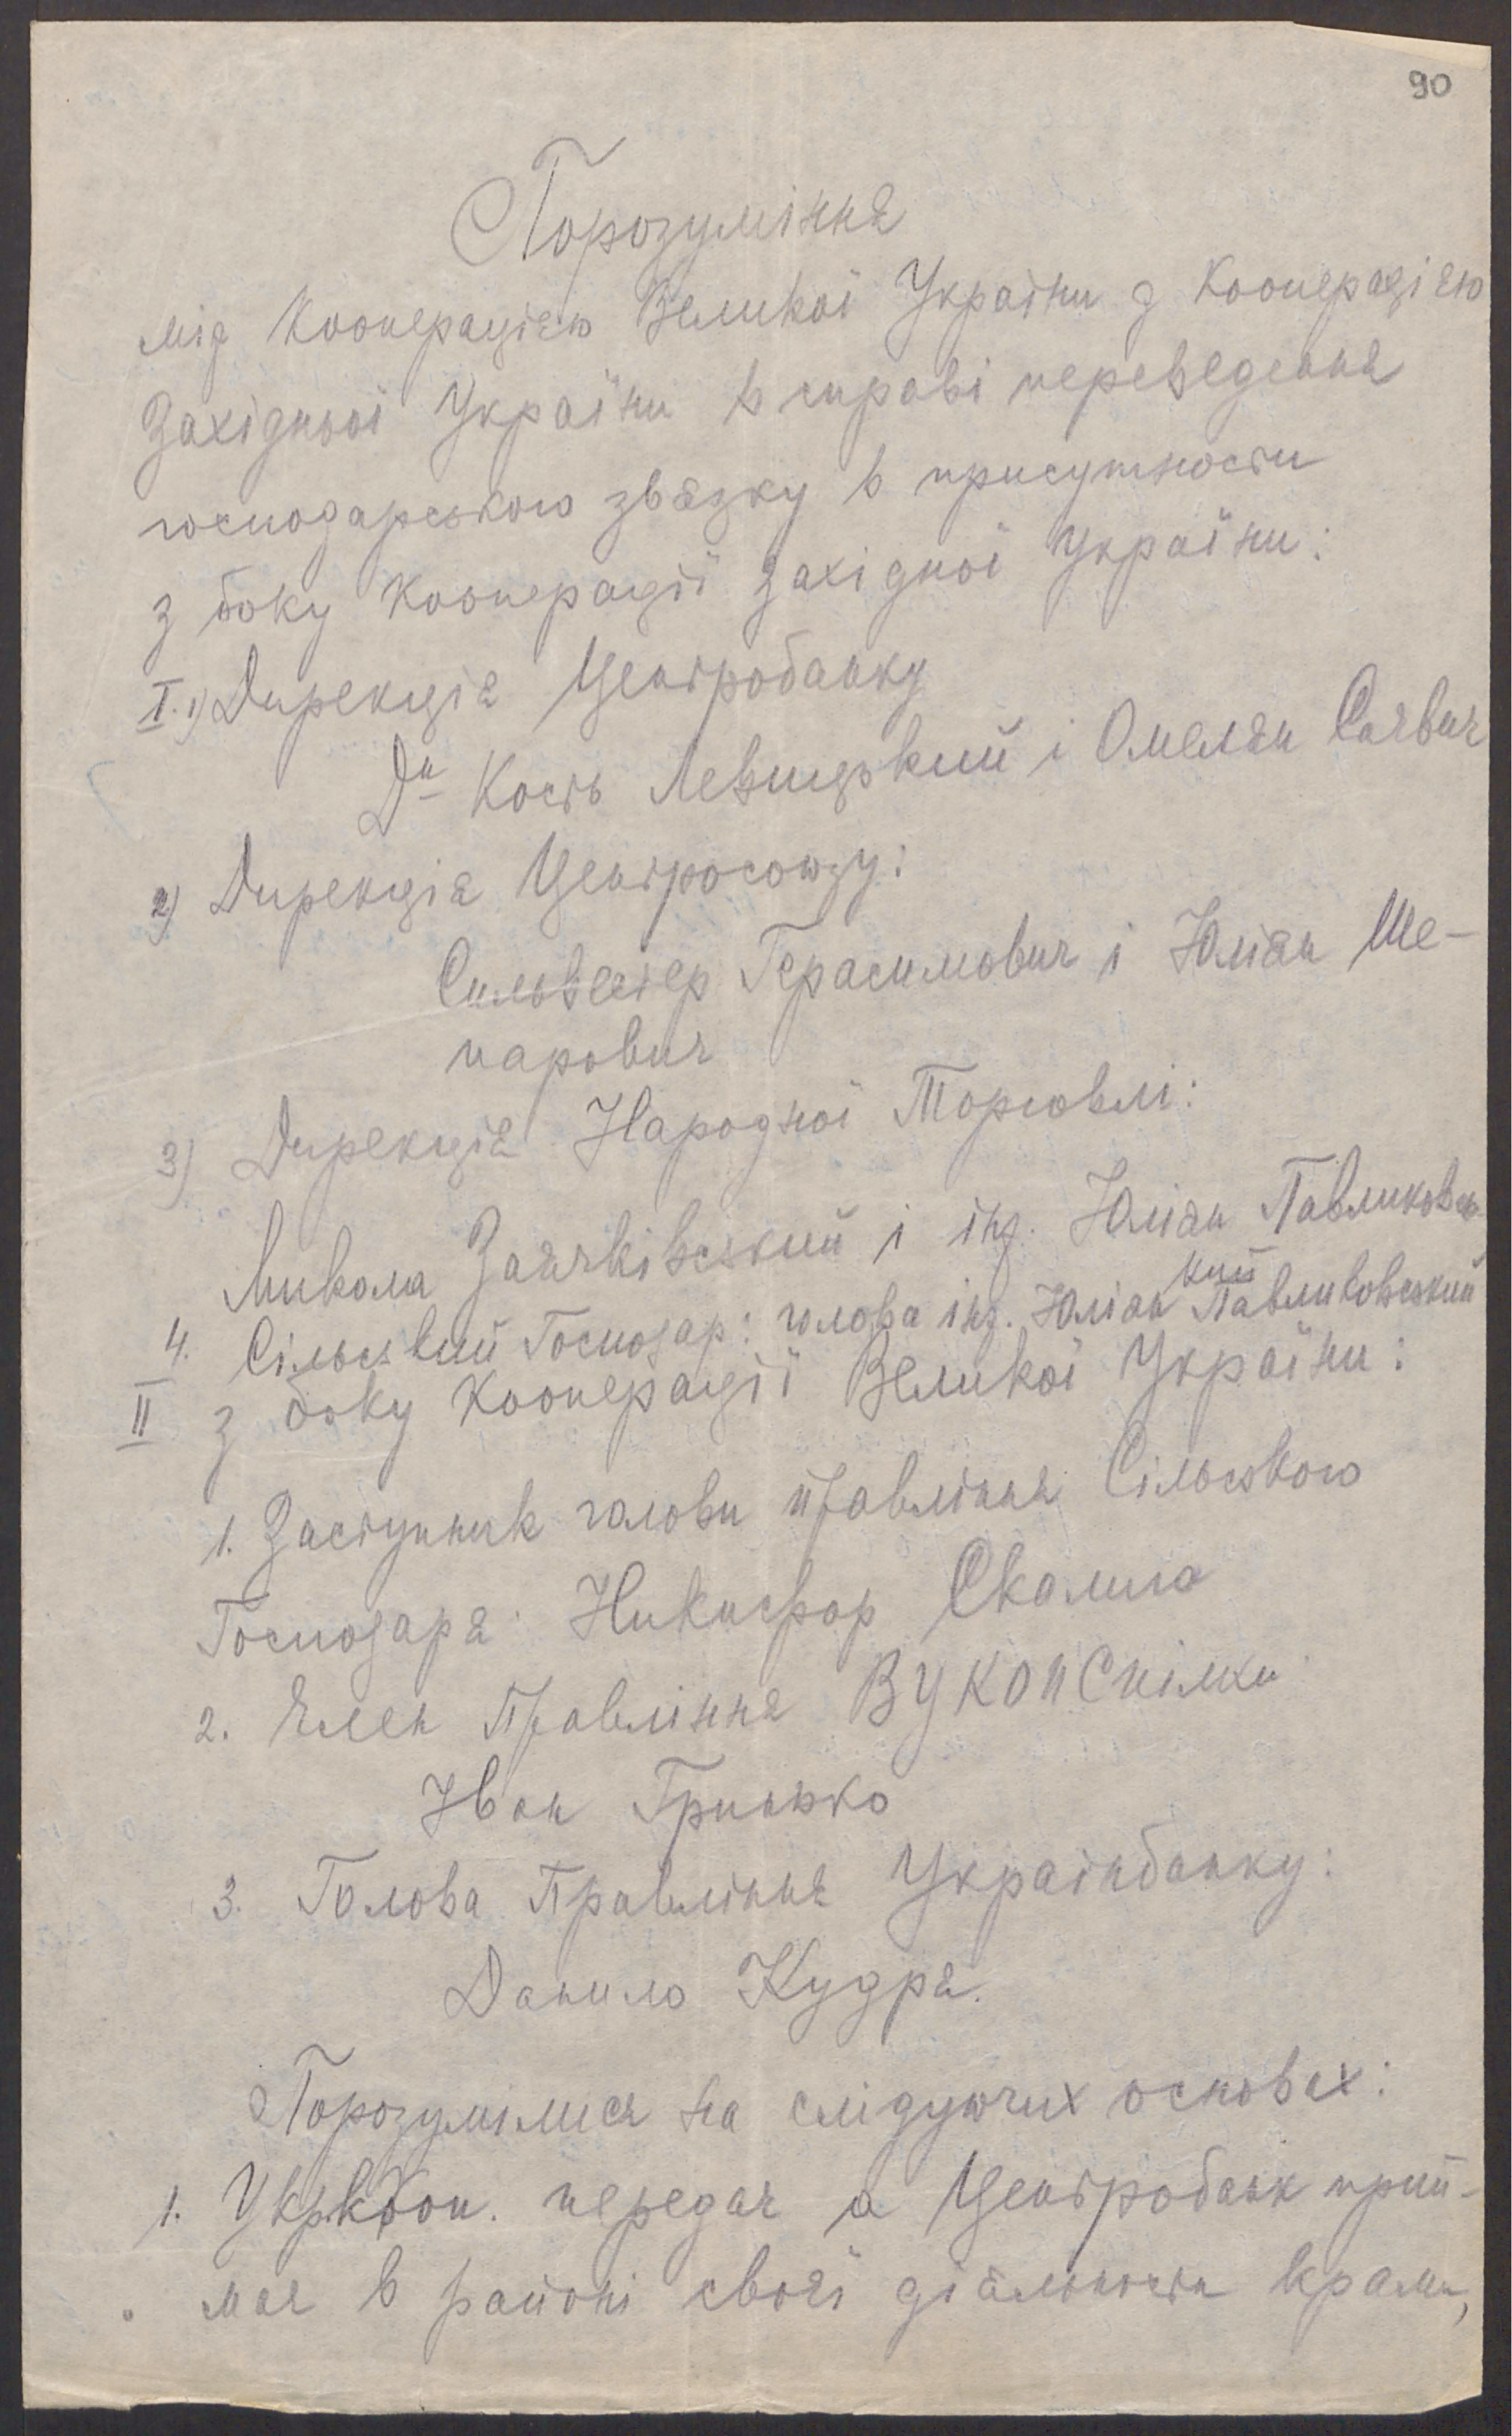 90
Порозуміннє
між Кооперацією Великої України з Кооперацією
Західної України в справі переведення
господарського звязку в присутности
з боку Кооперації Західної України:
I. 1) Дирекція Центробанку
Др Кость Левицький і Омелян Саєвич
2) Дирекція Центросоюзу:
Сильвестер Герасимович і Юліан Ше-
парович
3) Дирекція Народної Торговлі:
Микола Заячківський і інж. Юліан Павликовсь
кий
4. Сільський Господар: голова інж. Юліан Павликовський
II з боку Кооперації Великої України:
1. Заступник голови правління Сільського
Господаря: Никифор Скалига
2. Член Правління ВУКОПСпілки
Іван Гринько
3. Голова Правління Українбанку:
Данило Кудря.
Порозумілися на слідуючих основах:
1. передає а Центробанк прий-
має в районі своєї діяльности крами,